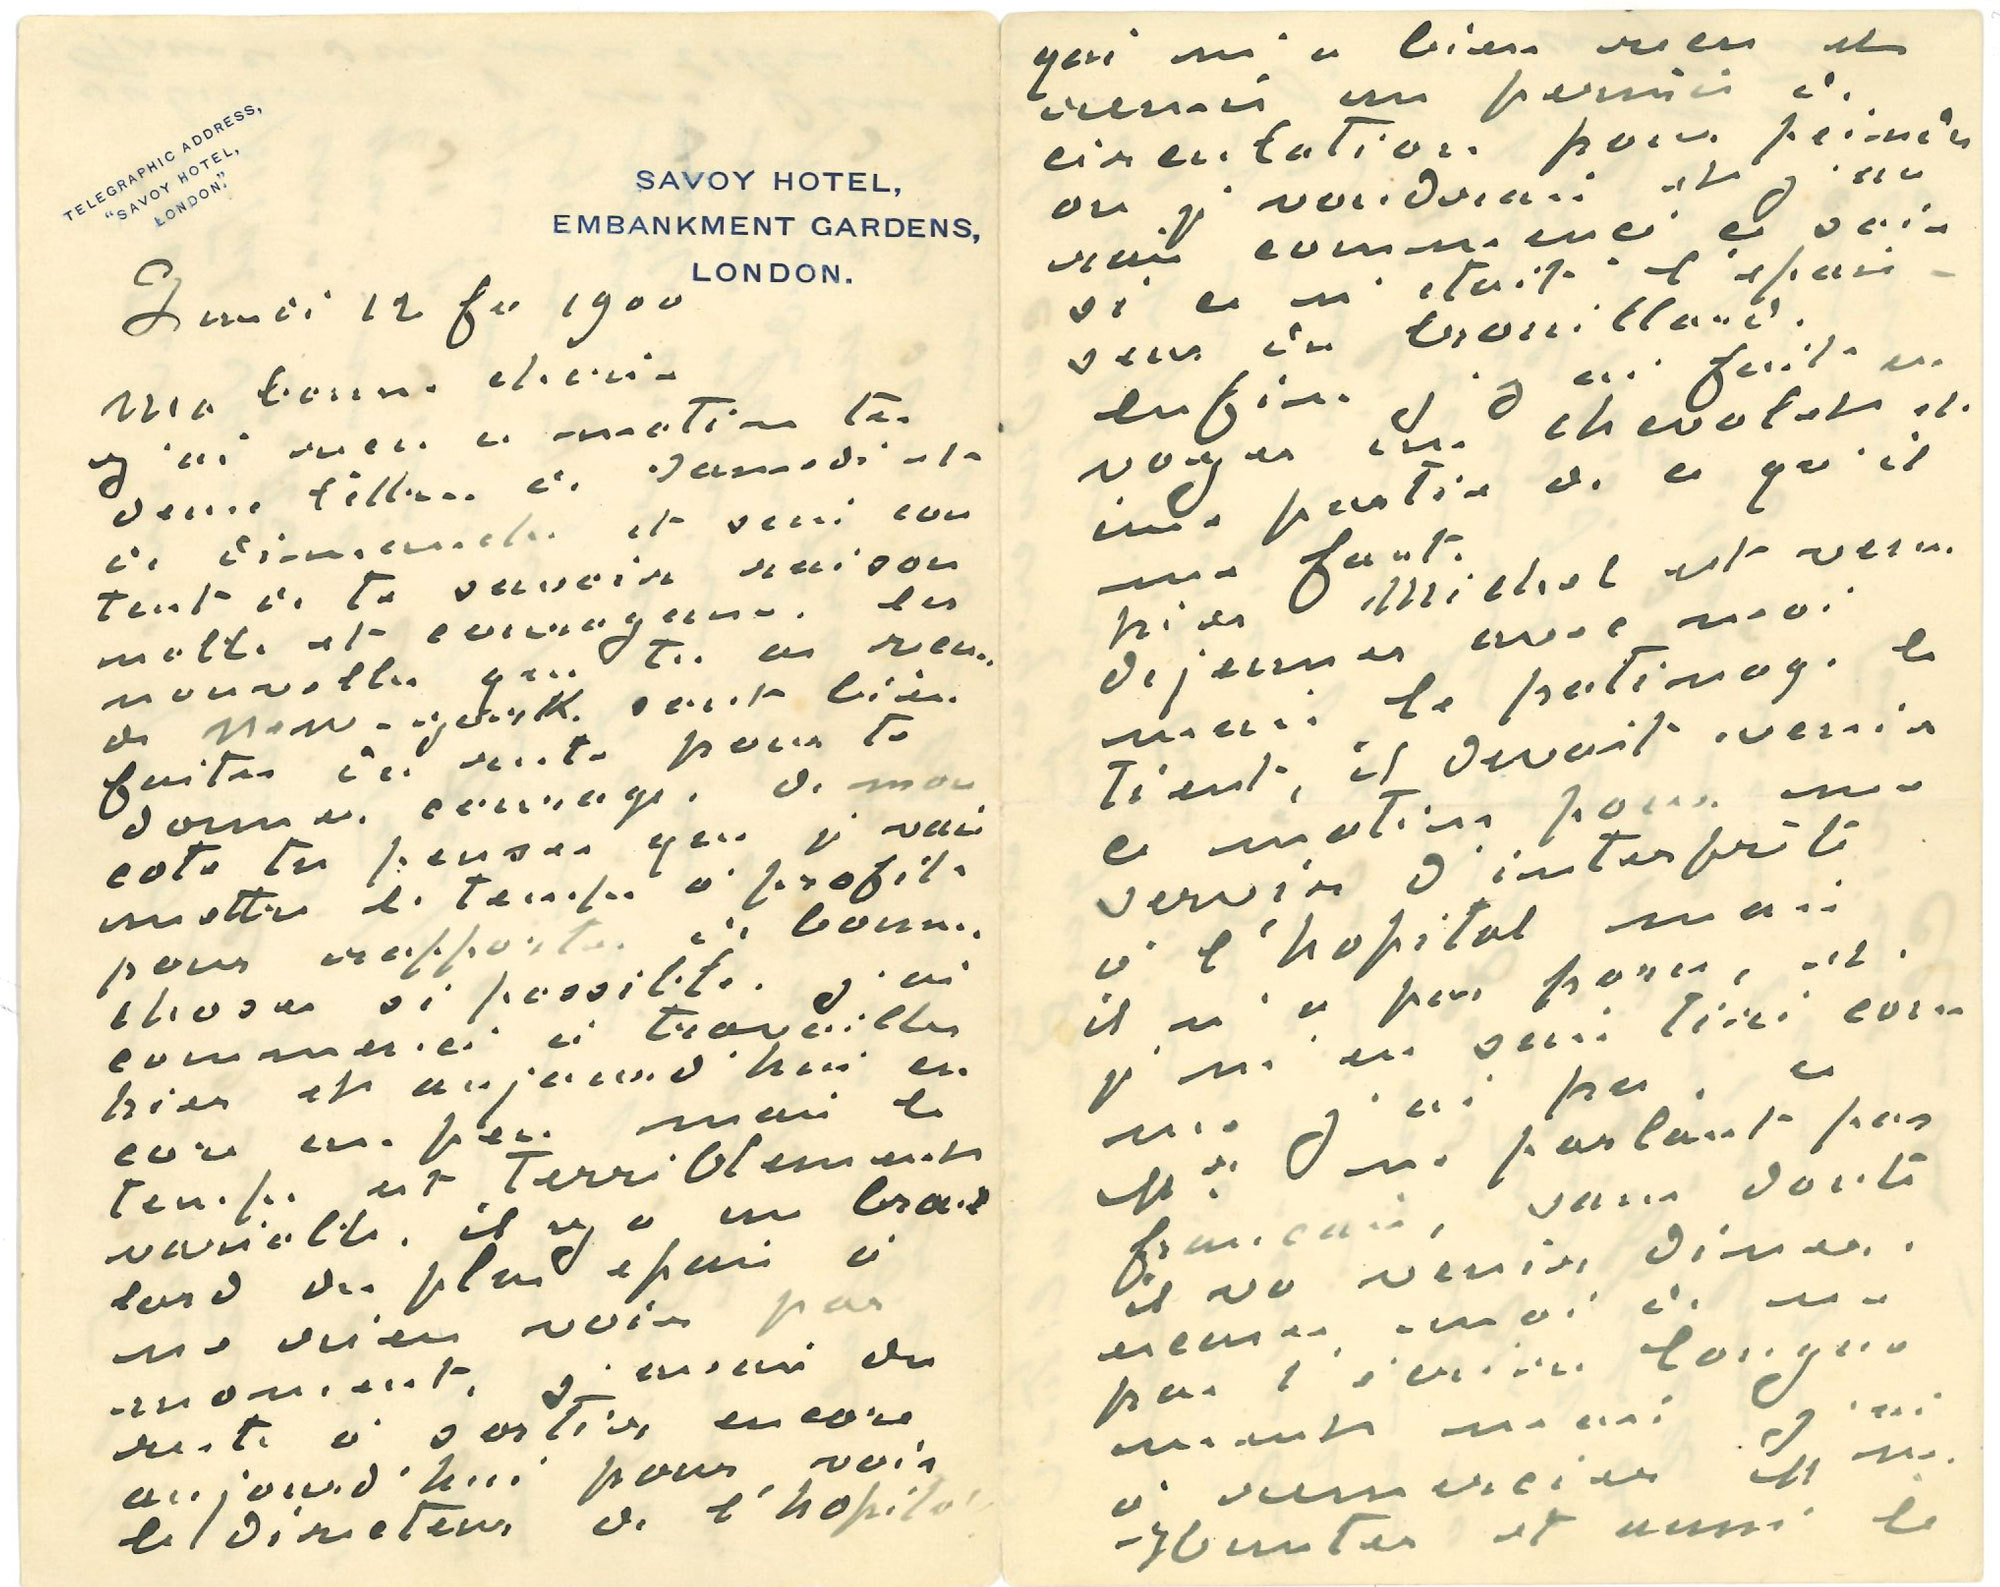 TELEGRAPHIC ADDRESS,
"SAVOY HOTEL,
LONDON."
SAVOY HOTEL,
EMBANKMENT GARDENS,
LONDON.
Lundi 12 fev 1900
Ma bonne cherie
J'ai reçu ce matin tes
deux lettres de Samedi et
de dimanche et suis con
tent de te savoir raison
nable et courageuse. Les
nouvelles que tu as reçu
de New-york sont bien
faites du reste pour te
donner courage. de mon
coté tu penses que je vais
mettre le temps à profit
pour rapporter de bonnes
choses si possible. J'ai
commencé à travailler
hier et aujourd'hui en
core un peu mais le
temps est terriblement
variable, il y a un brouil
lard des plus epais à
ne rien voir par
moment. J'irai du
reste à sortir encore
aujourd'hui pour voir
le directeur de l'hopital
qui m'a bien reçu et
remis un permis de
circulation pour peindre
ou je voudrais et j'au
rais commencé ce soir
si ce n'était l'epais-
seur du brouillard.
Enfin j'ai fait en
voyer un chevalet et
une partie de ce qu'il
me faut.
hier Michel est venu
dejeuner avec moi
mais le patinage le
tient, il devait venir
ce matin pour me
servir d'interprète
à l'hopital mais
il n'a pas pouru, et
je m'en suis tiré com
me j'ai pu, ce
Mr ne parlant pas
français, sans doute
il va venir diner
avec moi de ne
pas l'ennuie longue
ment mais j'ai
à remercier Mme
Hunter et aussi le